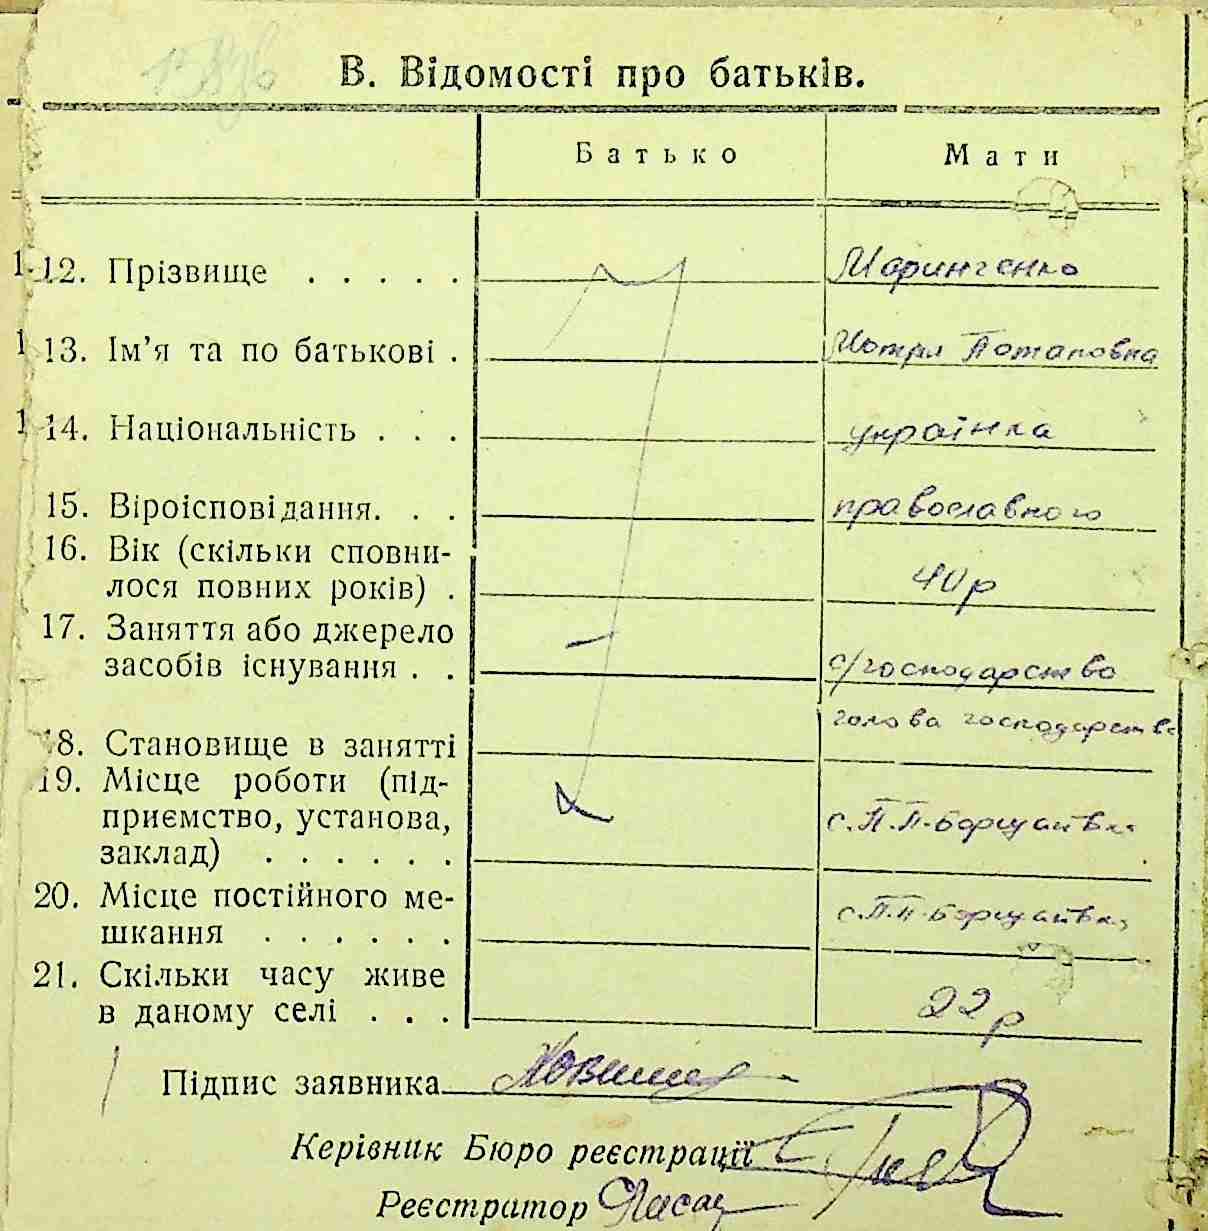 В. Відомості про батьків.
Батько Мати
12. Прізвище . . . . . Маринченко
13. Ім'я та по батькові . Мотря Потаповна
14. Національність . . . українка
15. Віроісповідання. . . православного
16. Вік (скільки сповни-
лося повних років) . 40 р
17. Заняття або джерело
засобів існування . . с/господарство
18. Становище в занятті голова господарства
19. Місце роботи (під-
приємство, установа,
заклад) . . . . . . с. П.П-Борщагівка
20. Місце постійного ме-
шкання . . . . . . с. П.П-Борщагівка
21. Скільки часу живе
в даному селі . . . 22 р
Підпис заявника
Керівник Бюро реєстрації
Реєстратор